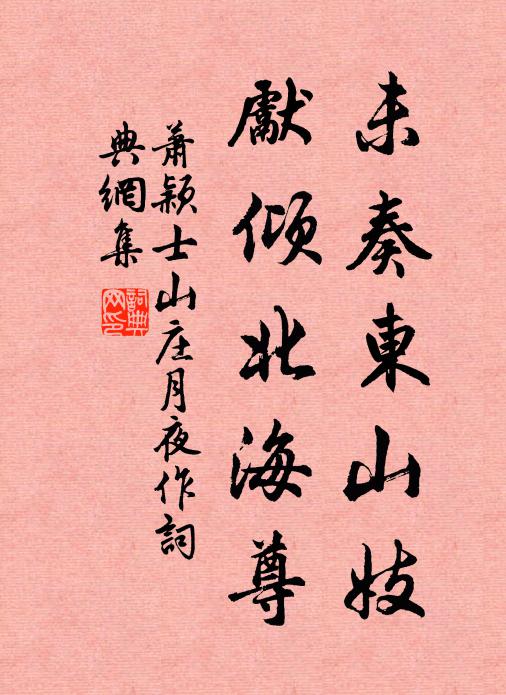 未奏東山妓
獻傾北海尊
蕭穎士山庄月夜作詞
典網集
詞典
网印